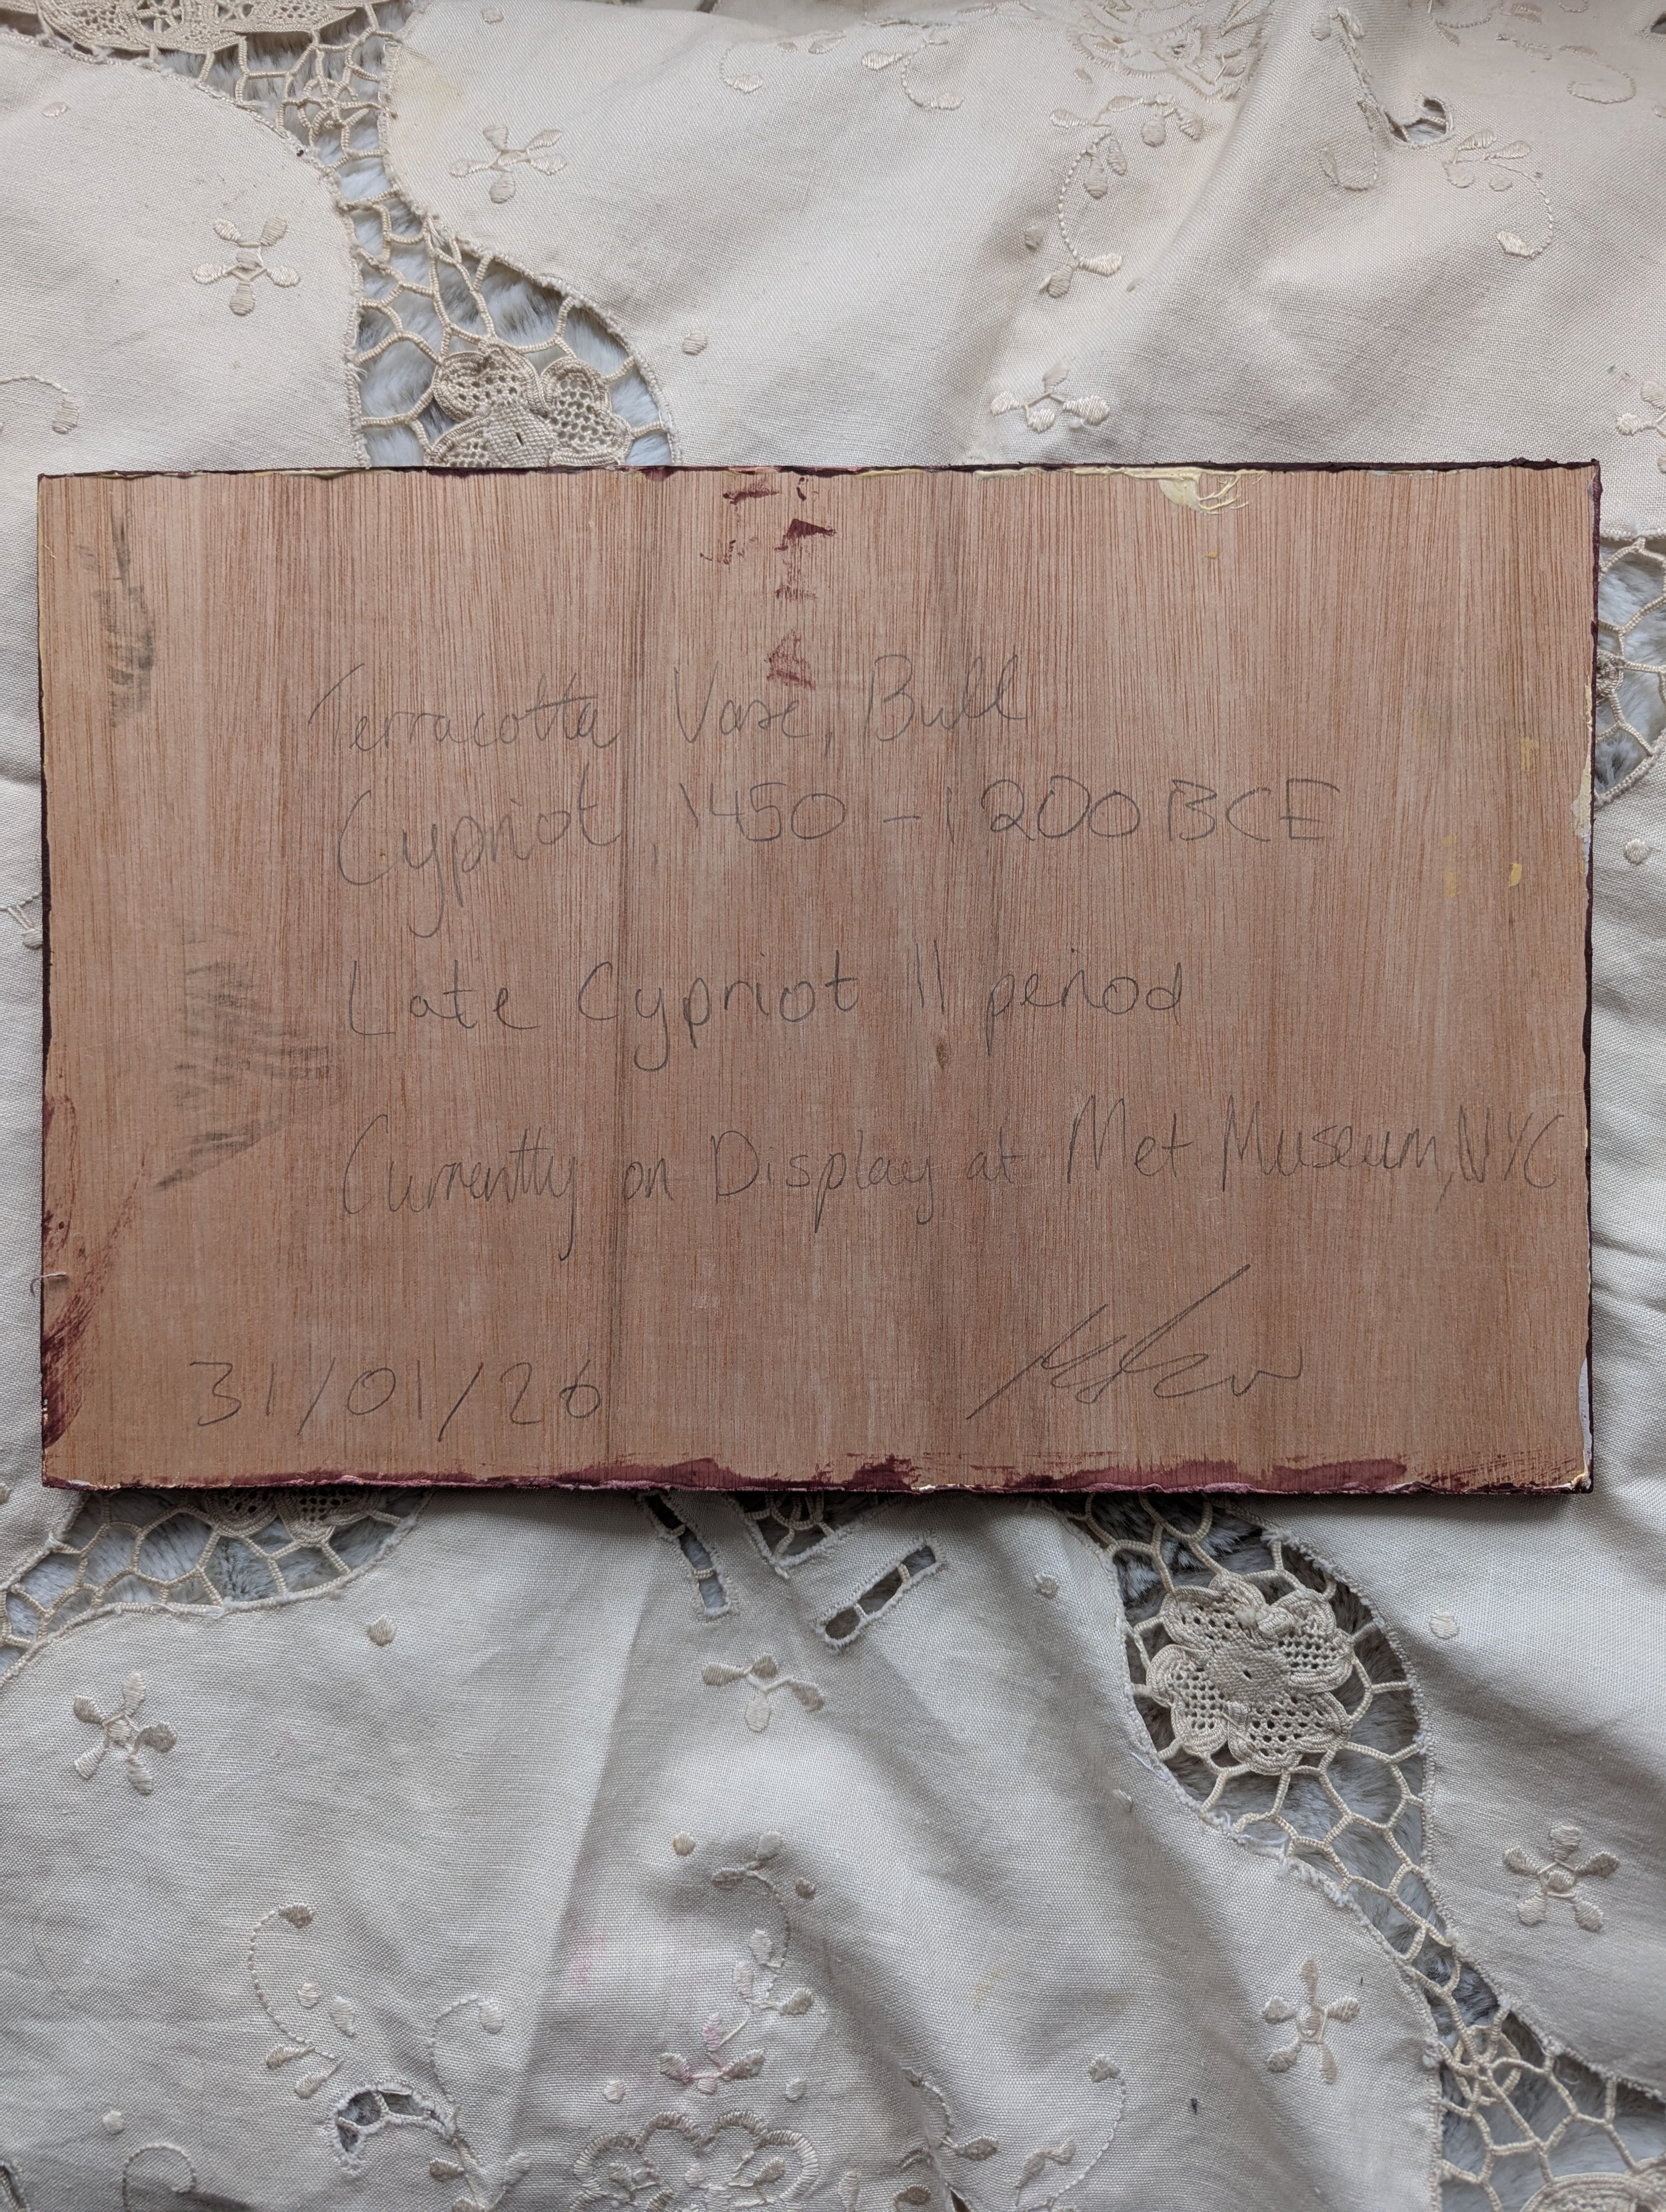 Terracotta Vase, Bull
Cypriot, 1450 - 1200 BCE
Late Cypriot II period
Currently on Display at Met Museum, NYC
31/01/26